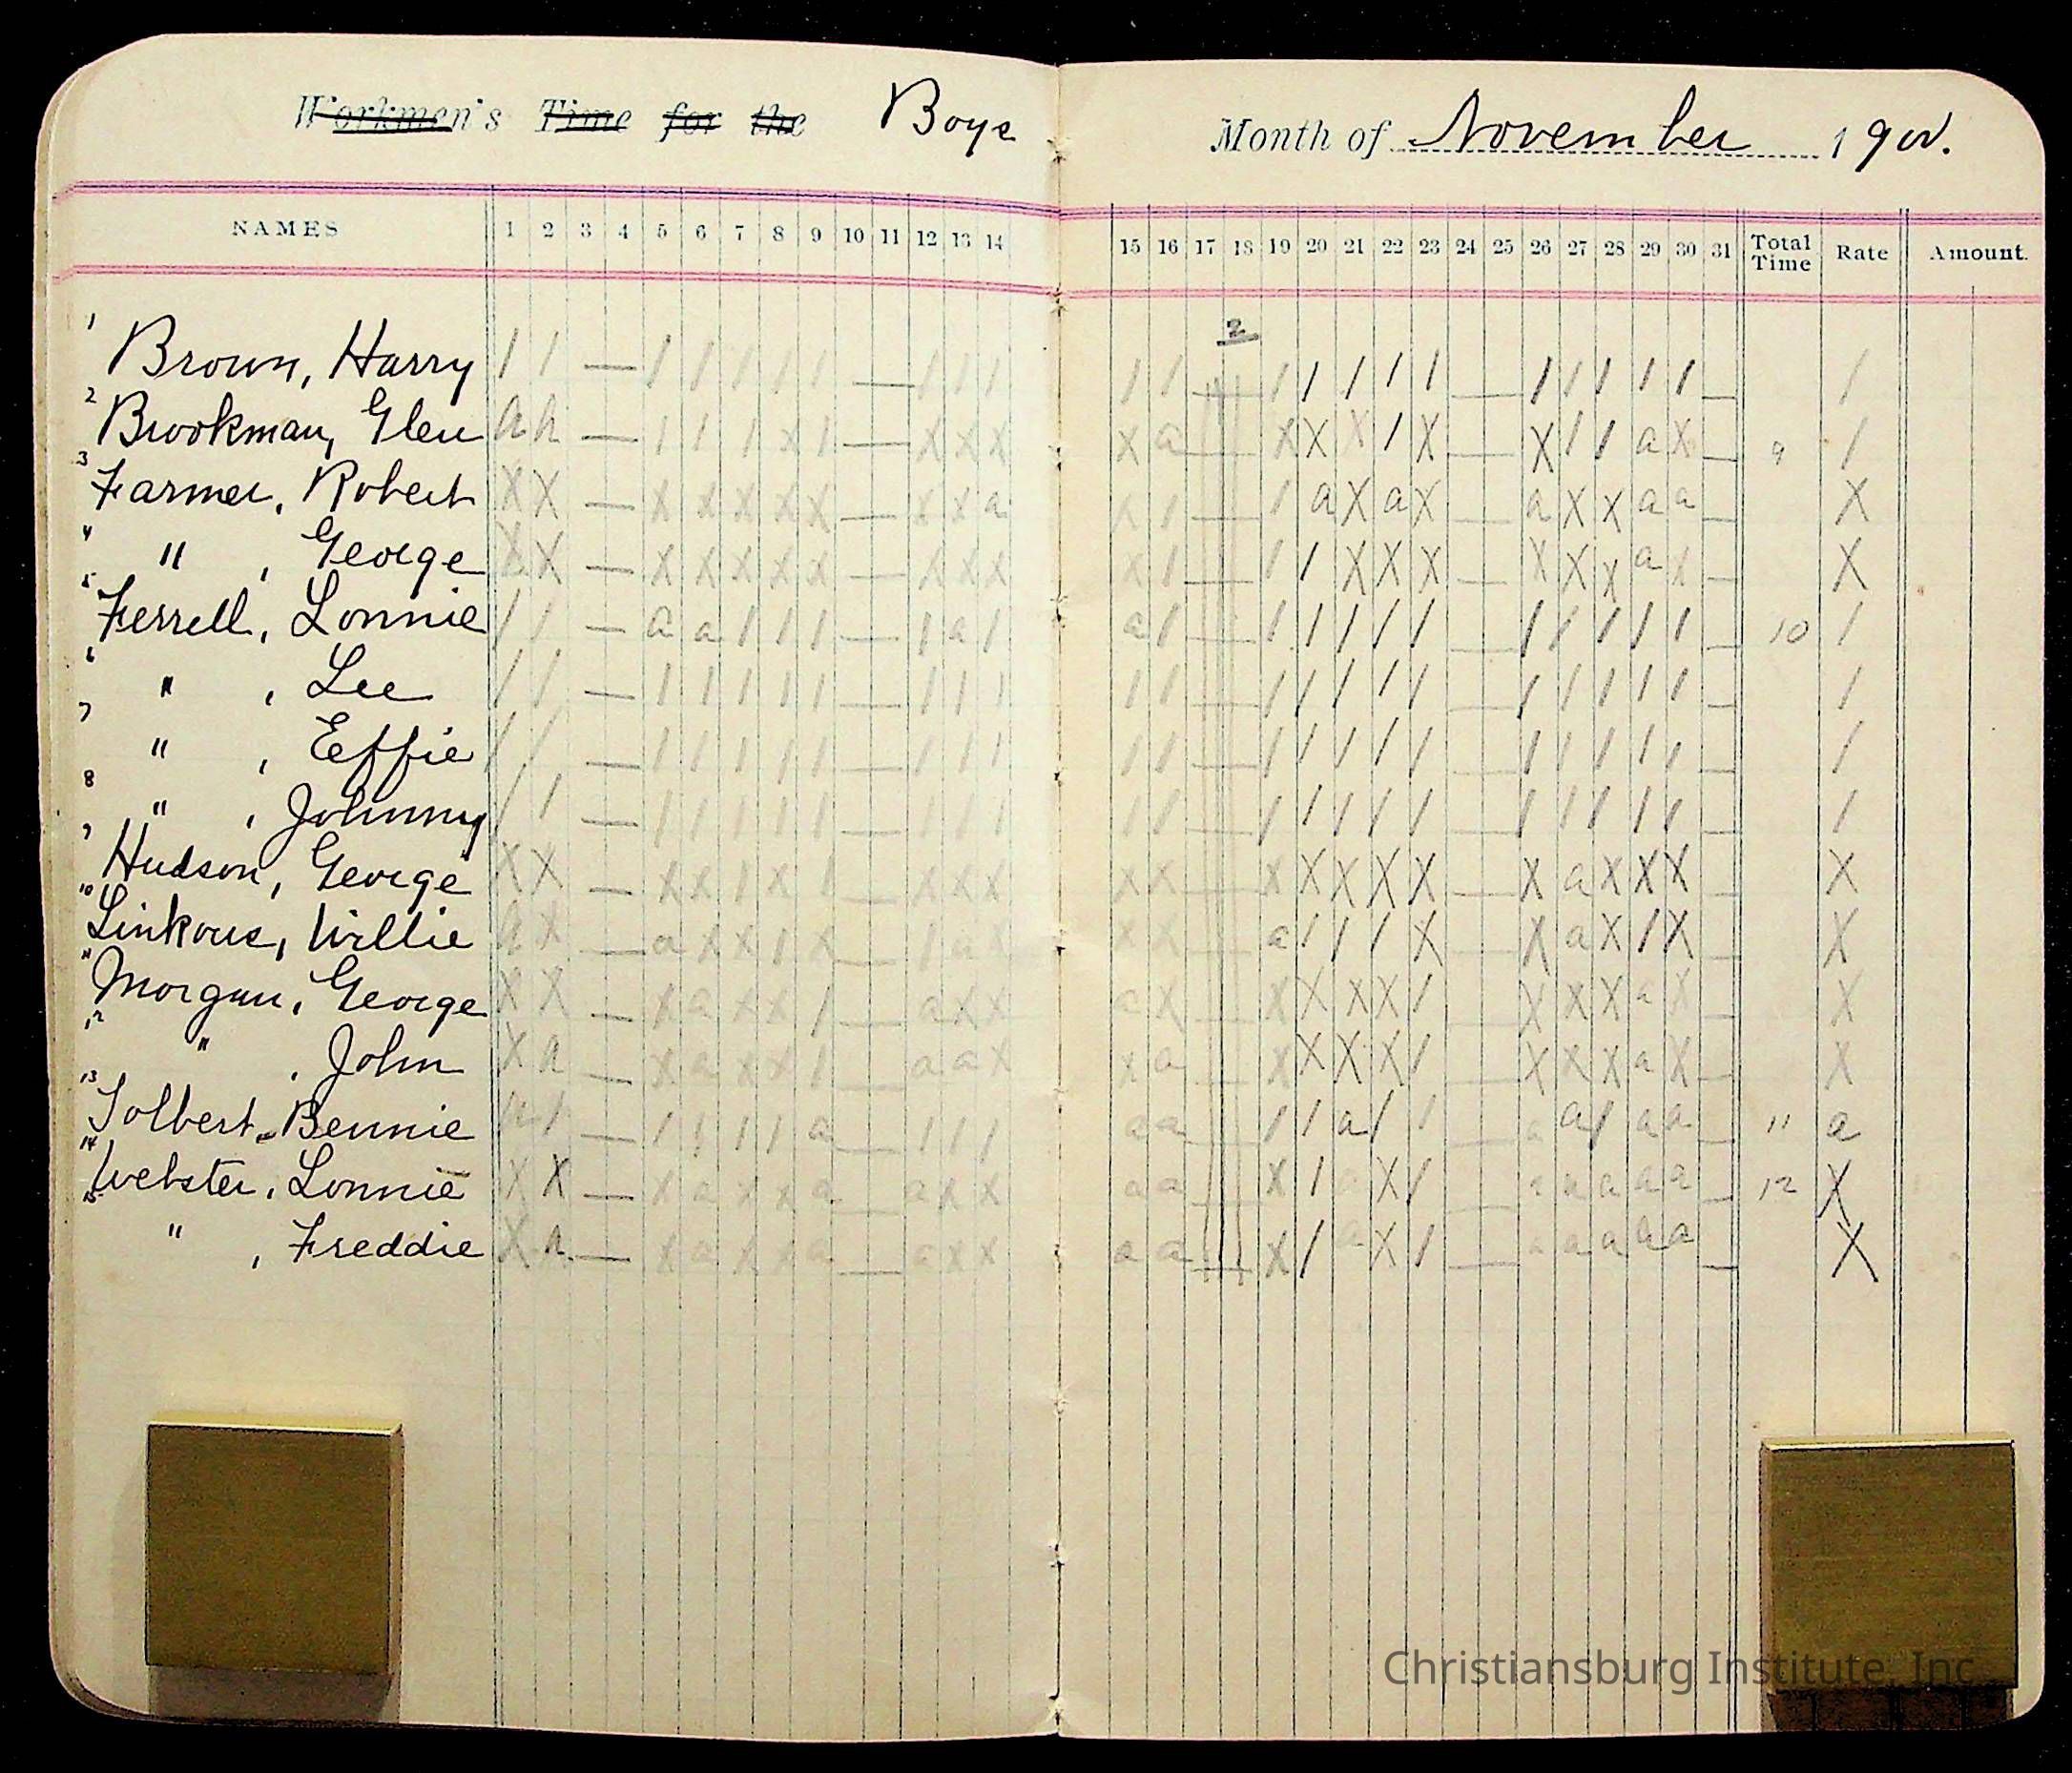 Workmen's Time for the Boys Month of November 1900.
NAMES 1 2 3 4 5 6 7 8 9 10 11 12 13 14 15 16 17 18 19 20 21 22 23 24 25 26 27 28 29 30 31 Total Time Rate Amount.
2
1 Brown, Harry / / — / / / / / — / / / / / — / / / / / — / / / / / — /
2 Brookman, Glen a a — / / / x / — x x x x a — x x x / x — x / / a x — 9 /
3 Farmer, Robert x x — x x x x x — x x a x / — / a x a x — a x x a a — x
4 " , George x x — x x x x x — x x x x / — / / x x x — x x x a x — x
5 Ferrell, Lonnie / / — a a / / / — / a / a / — / / / / / — / / / / / — 10 /
6 " , Lee / / — / / / / / — / / / / / — / / / / / — / / / / / — /
7 " , Eeffie / / — / / / / / — / / / / / — / / / / / — / / / / / — /
8 " , Johnny / / — / / / / / — / / / / / — / / / / / — / / / / / — /
9 Hudson, George x x — x x / x / — x x x x x — x x x x x — x a x x x — x
10 Linkous, Willie a x — a x x / x — / a x x x — a / / / x — x a x / x — x
11 Morgan, George x x — x a x x / — a x x a x — x x x x / — x x x a x — x
12 " , John x a — x a x x / — a a x x a — x x x x / — x x x a x — x
13 Tolbert, Bennie a / — / / / / a — / / / a a — / / a / / — a a / a a — 11 a
14 Webster, Lonnie x x — x a x x a — a x x a a — x / a x / — a a a a a — 12 x
15 " , Freddie x a — x a x x a — a x x a a — x / a x / — a a a a a — x
Christiansburg Institute, Inc.